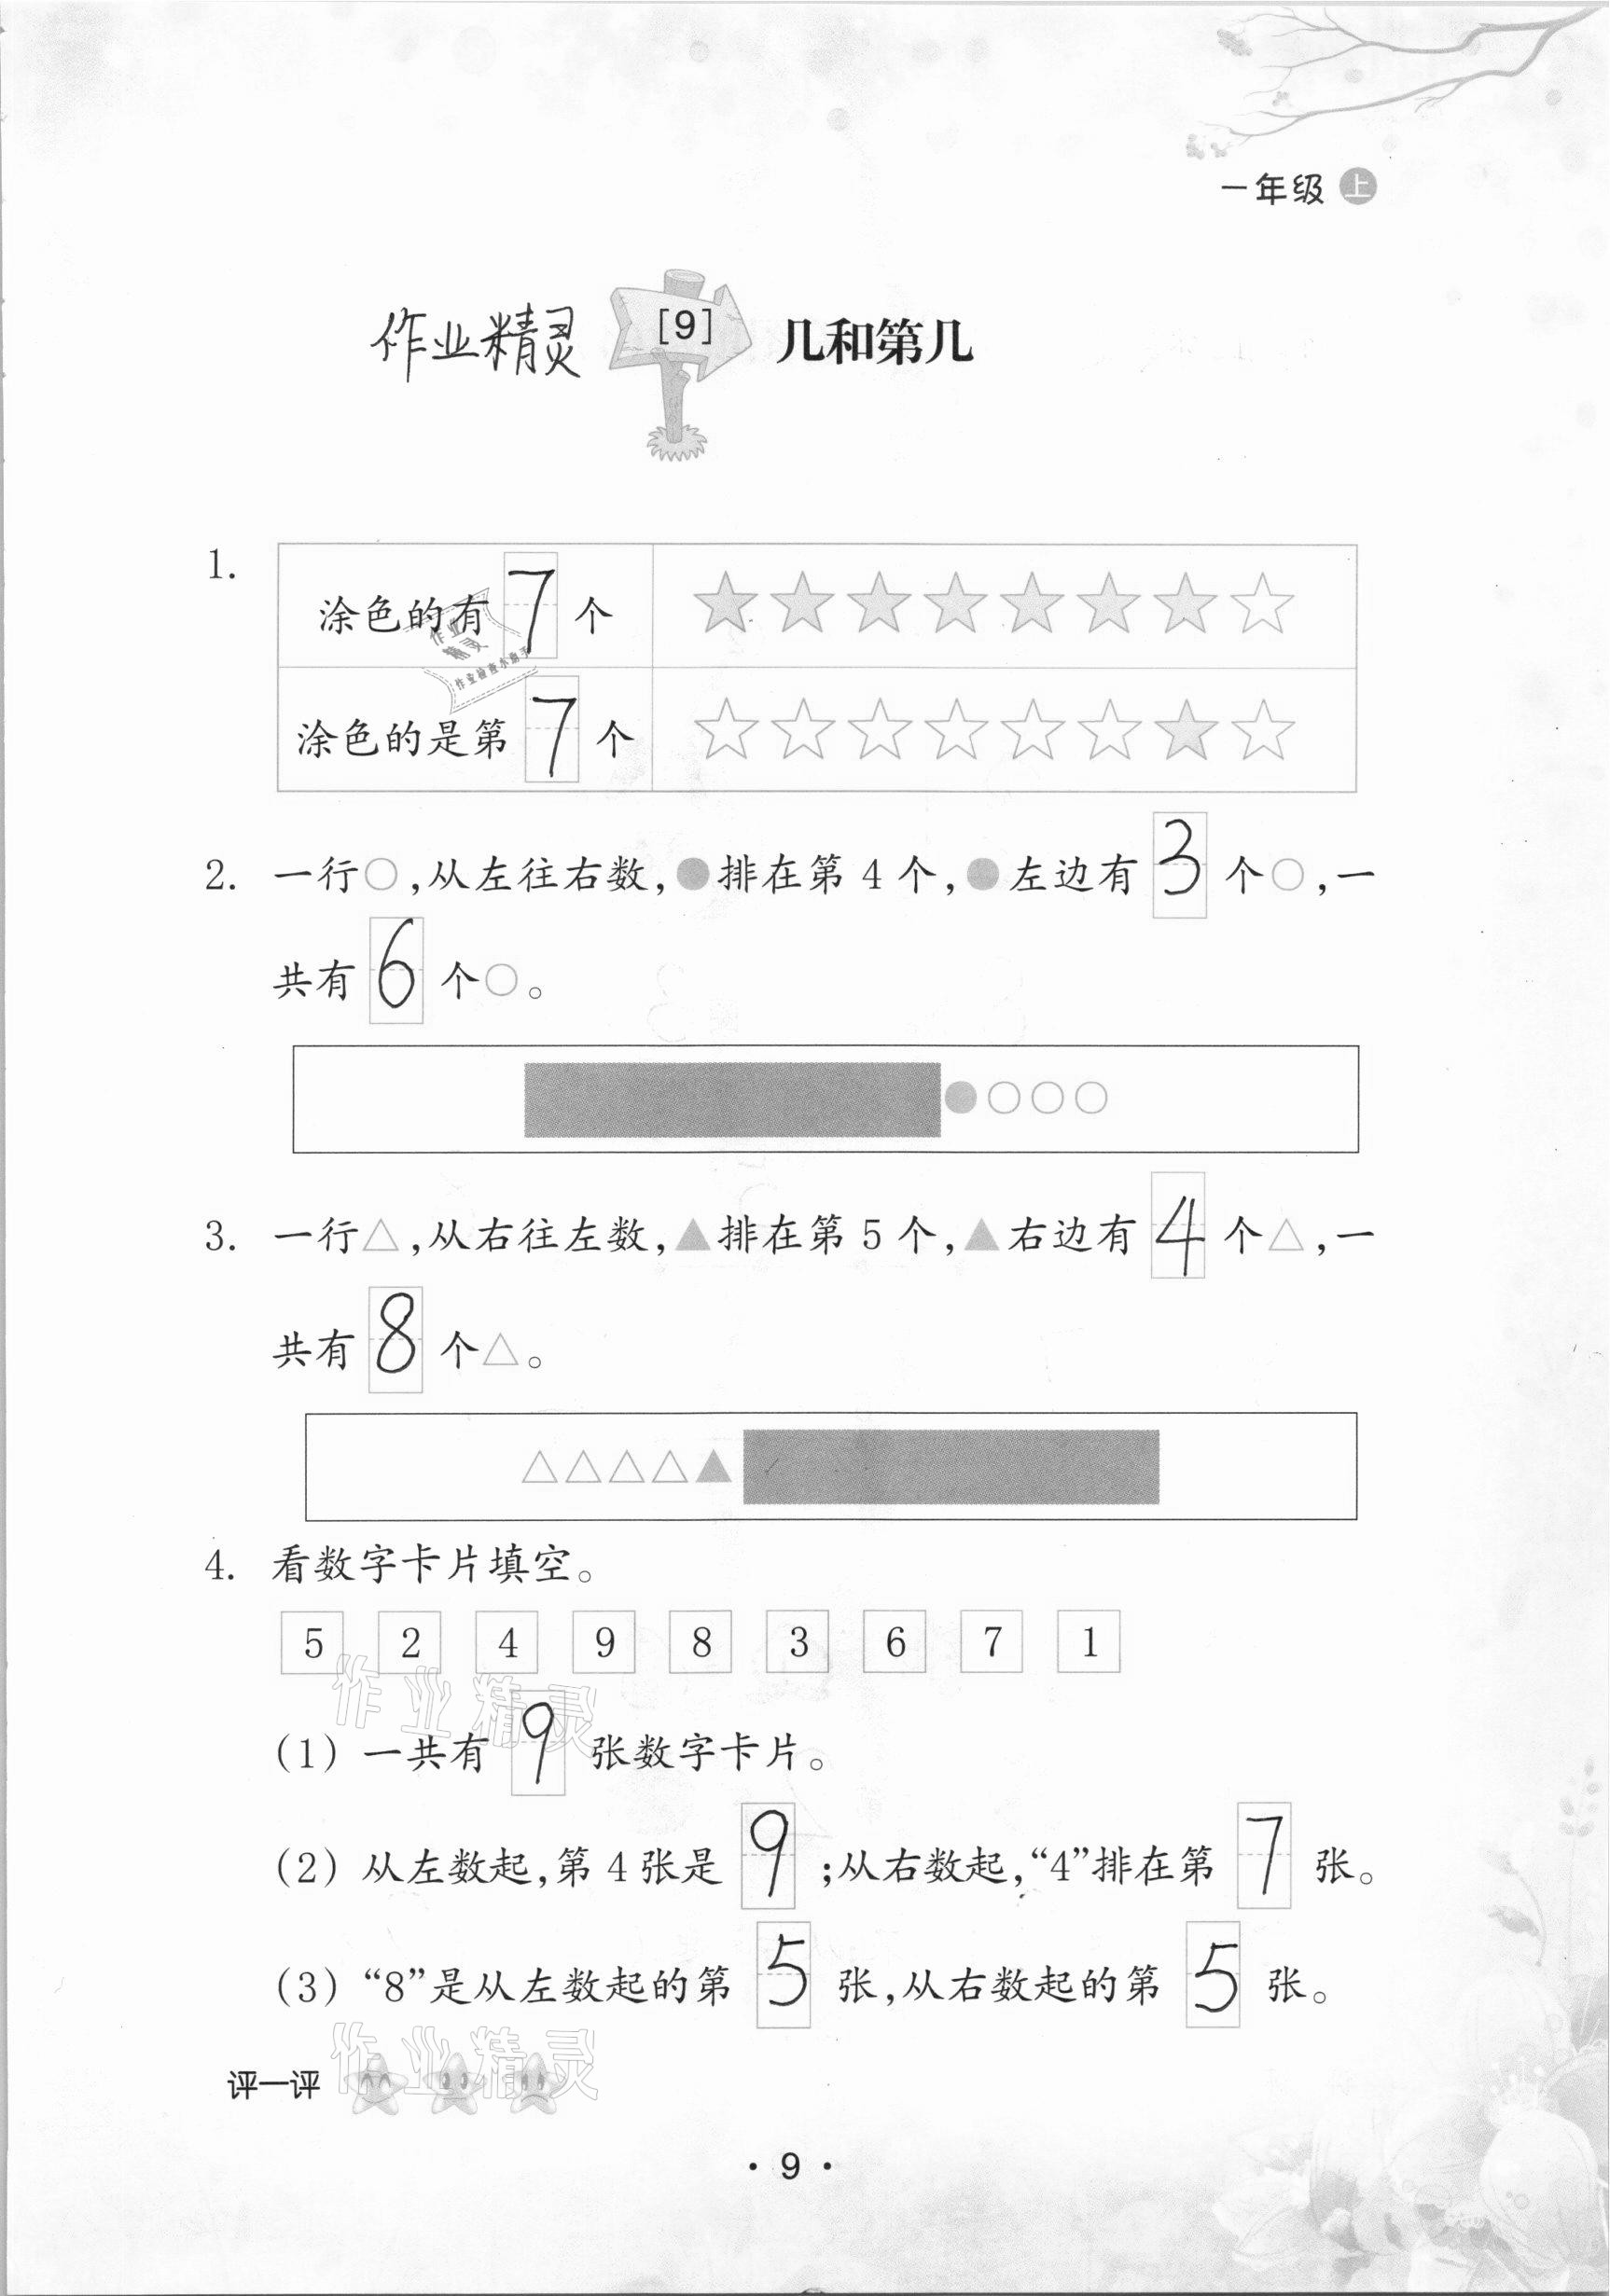 一年级 上
作业精灵 [9] 几和第几
1. 涂色的有 7 个
作业精灵
作业检查小助手
涂色的是第 7 个
2. 一行○,从左往右数,●排在第 4 个,●左边有 3 个○,一
共有 6 个○。
3. 一行△,从右往左数,▲排在第 5 个,▲右边有 4 个△,一
共有 8 个△。
4. 看数字卡片填空。
5 2 4 9 8 3 6 7 1
作业精灵
(1) 一共有 9 张数字卡片。
(2) 从左数起,第 4 张是 9 ;从右数起,“4”排在第 7 张。
(3) “8”是从左数起的第 5 张,从右数起的第 5 张。
作业精灵
评一评
· 9 ·